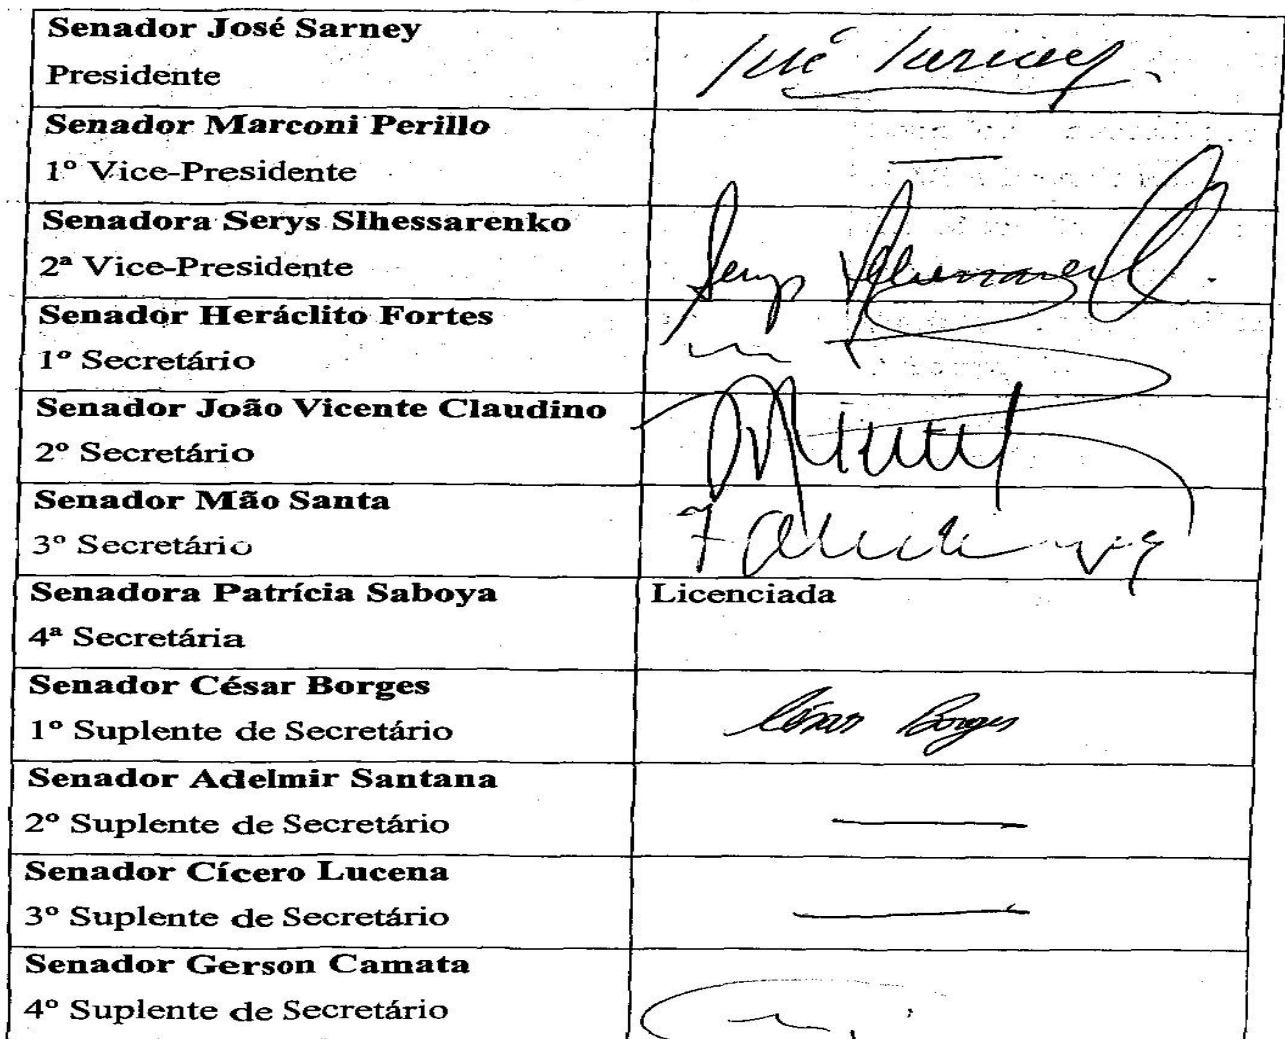 Senador José Sarney
Presidente
José Sarney
Senador Marconi Perillo
1º Vice-Presidente
Senadora Serys Slhessarenko
2ª Vice-Presidente
Serys Slhessarenko
Senador Heráclito Fortes
1º Secretário
Senador João Vicente Claudino
2º Secretário
Senador Mão Santa
3º Secretário
Senadora Patrícia Saboya
Licenciada
4ª Secretária
Senador César Borges
1º Suplente de Secretário
César Borges
Senador Adelmir Santana
2º Suplente de Secretário
Senador Cícero Lucena
3º Suplente de Secretário
Senador Gerson Camata
4º Suplente de Secretário